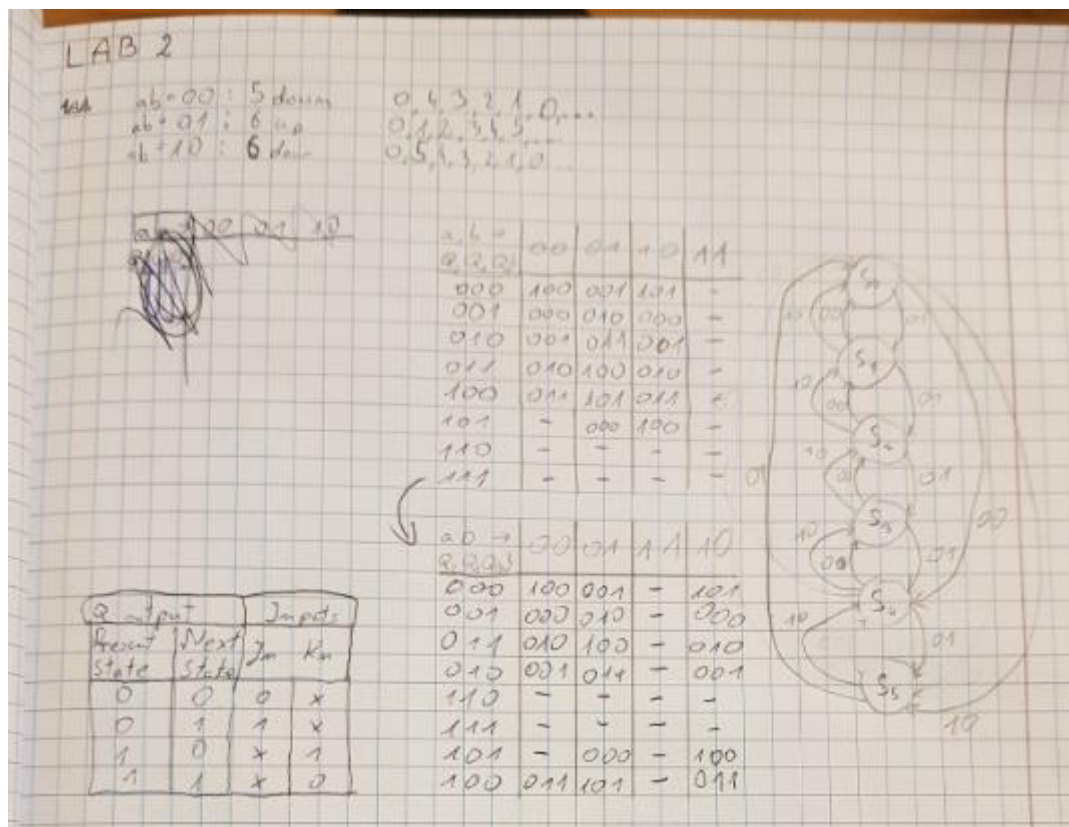 LAB 2
ab=00 : 5 down 0,4,3,2,1,0,...
ab=01 : 6 up 0,1,2,3,4,5,...
ab=10 : 6 down 0,5,4,3,2,1,0...
00 01 10
a,b → 00 01 10 11
000 100 001 101 -
001 000 010 000 -
010 001 011 001 -
011 010 100 010 -
100 011 101 011 -
101 - 000 100 -
110 - - - -
111 - - - -
ab → 00 01 11 10
000 100 001 - 101
001 000 010 - 000
011 010 100 - 010
010 001 011 - 001
110 - - - -
111 - - - -
101 - 000 - 100
100 011 101 - 011
Q output Inputs
Present State Next State Jn Kn
0 0 0 x
0 1 1 x
1 0 x 1
1 1 x 0
10 00 01
S1
10 00 01
10 00 01
01
S3
10 00 01
00
10 01
S5
10